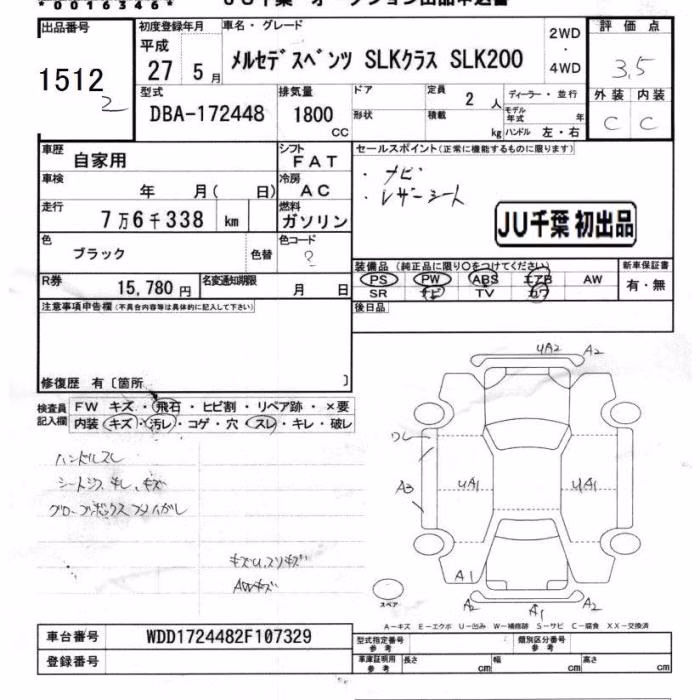 *0016346*
JU千葉 オークション出品申込書
出品番号
1512
2
初度登録年月
平成
27 5月
車名・グレード
メルセデスベンツ SLKクラス SLK200
2WD
・
4WD
評価点
3.5
外装 内装
C C
型式
DBA-172448
排気量
1800
CC
ドア
形状
定員
2 人
積載
kg
ディーラー・並行
モデル年式 年
ハンドル 左・右
車歴
自家用
シフト
FAT
車検
年 月( 日)
冷房
AC
走行
7万6千338 km
燃料
ガソリン
色
ブラック
色替
色コード
?
R券
15,780 円
名変通知期限
月 日
セールスポイント(正常に機能するものに限ります)
・ナビ
・レザーシート
JU千葉 初出品
装備品 (純正品に限り○をつけてください)
PS PW ABS エアB AW
SR ナビ TV カワ
新車保証書
有・無
後日品
注意事項申告欄(不具合内容等は具体的に記入して下さい)
修復歴 有〔箇所 〕
検査員記入欄
FW キズ・飛石・ヒビ割・リペア跡・×要
内装 キズ・汚レ・コゲ・穴・スレ・キレ・破レ
ハンドルスレ
グローブボックス
キズU、スリキズ
AWキズ
UA2 A2
A3
UA1 UA1
A1
A2 A1 A2
スペア
A-キズ E-エクボ U-凹み W-補修跡 S-サビ C-腐食 XX-交換済
車台番号
WDD1724482F107329
登録番号
型式指定番号
参考
類別区分番号
参考
車庫証明用
参考
長さ cm
幅 cm
高さ cm